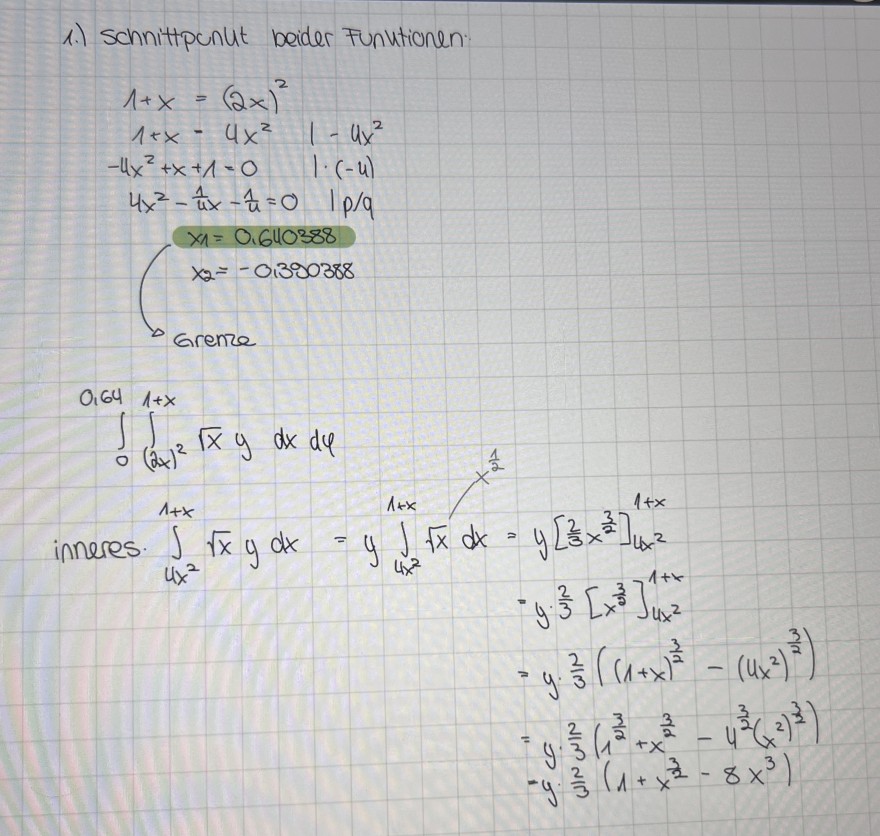 1.) Schnittpunut beider Funutionen:
1+x = (2x)²
1+x = 4x² | - 4x²
-4x² +x +1 = 0 | · (-4)
4x² - 1/4x - 1/4 = 0 | p/q
x1 = 0,640388
x2 = -0,390388
Grenze
∫₀^0,64 ∫_(2x)²^1+x √x y dx dy
x^(1/2)
inneres: ∫_4x²^1+x √x y dx = y ∫_4x²^1+x √x dx = y [2/3 x^(3/2)]_4x²^1+x
= y · 2/3 [x^(3/2)]_4x²^1+x
= y · 2/3 ((1+x)^(3/2) - (4x²)^(3/2))
= y · 2/3 (1^(3/2) + x^(3/2) - 4^(3/2) (x²)^(3/2))
= y · 2/3 (1 + x^(3/2) - 8x³)